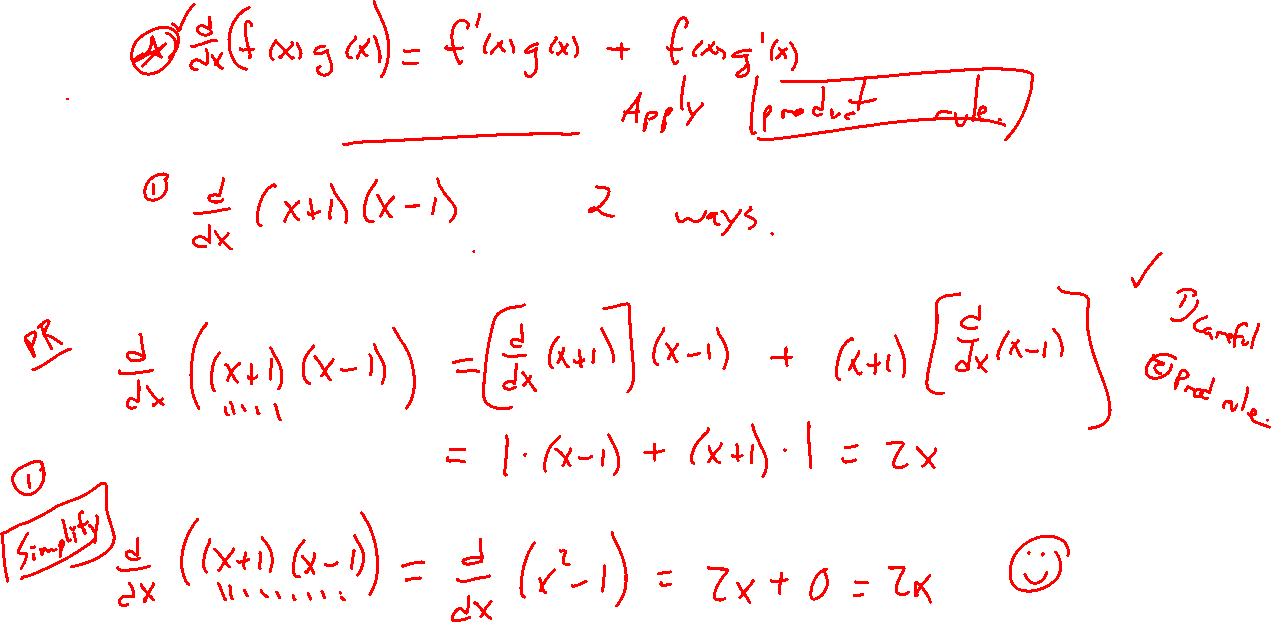 Ⓐ ✓ d/dx (f(x) g(x)) = f'(x) g(x) + f(x) g'(x)
Apply product rule.
① d/dx (x+1)(x-1) 2 ways.
PR d/dx ((x+1)(x-1)) = [d/dx (x+1)] (x-1) + (x+1) [d/dx (x-1)] ✓
1) Careful
② Prod rule.
= 1·(x-1) + (x+1)·1 = 2x
①
Simplify d/dx ((x+1)(x-1)) = d/dx (x²-1) = 2x + 0 = 2x